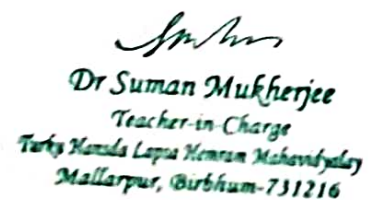 Dr Suman Mukherjee
Teacher-in-Charge
Turku Hansda Lapsa Hemram Mahavidyalay
Mallarpur, Birbhum-731216